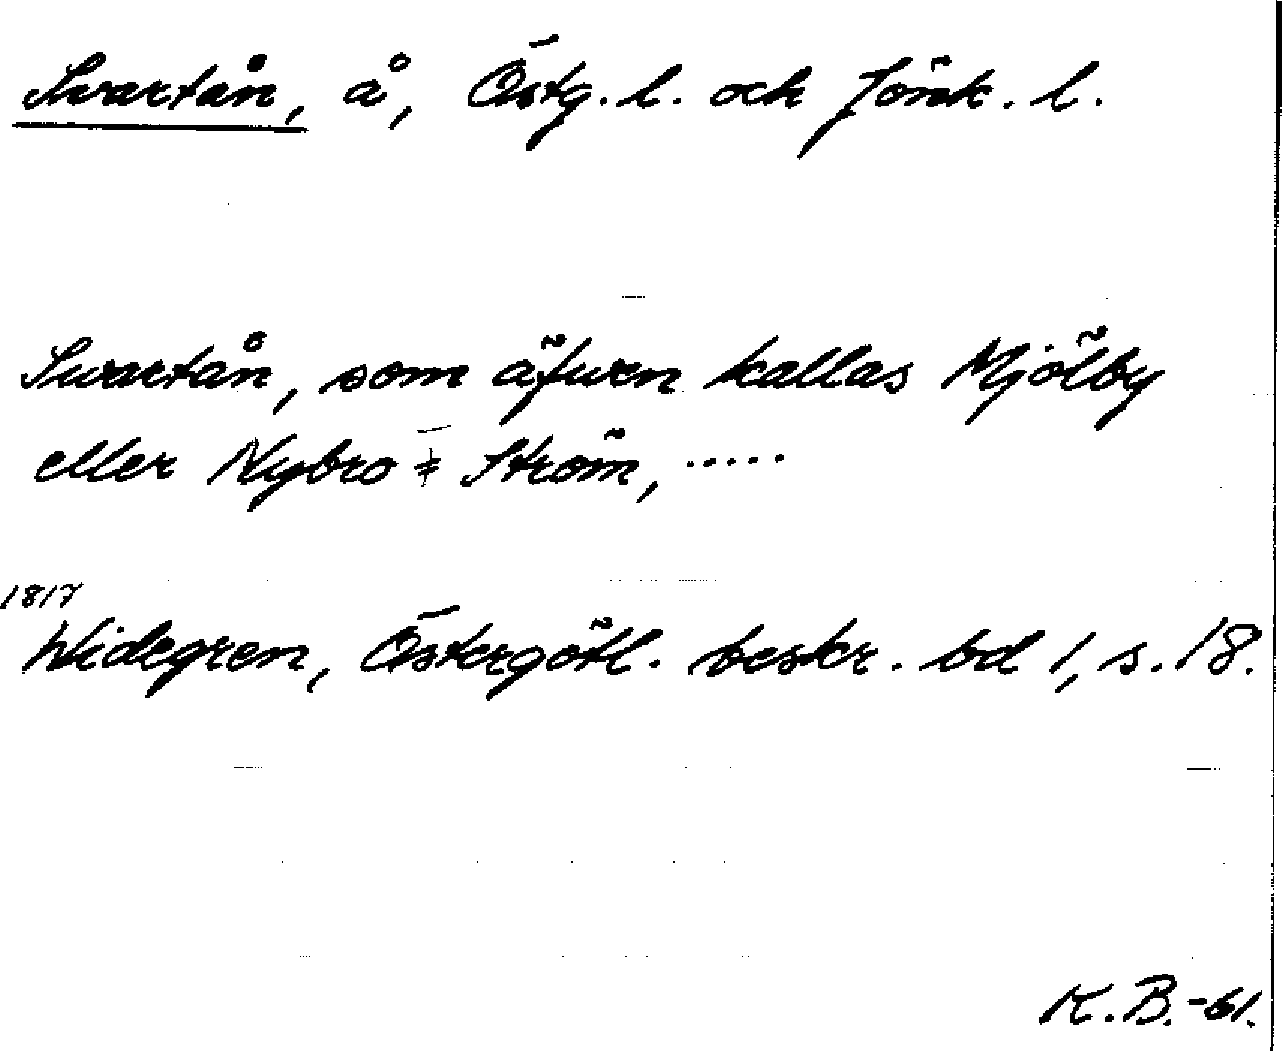 Svartån, å, Östg. l. och Jönk. l.
Swartån, som äfwen kallas Mjölby
eller Nybro = Ström, .....
1817
Widegren, Östergötl. beskr. bd 1, s. 18.
K.B.-61.